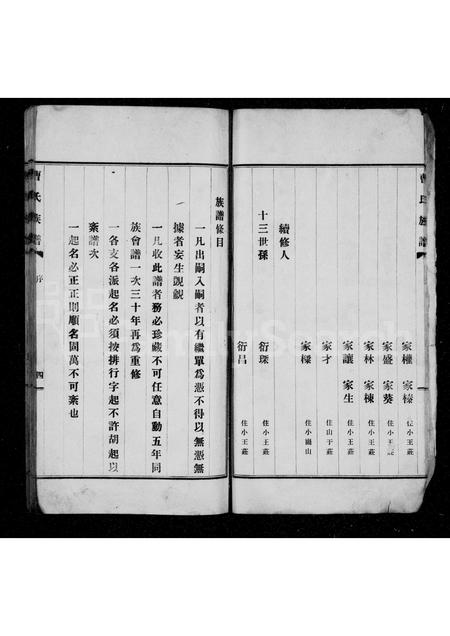 曹氏族譜
家權 家榛 住小王莊
家盛 家葵 住小王莊
家林 家棟 住小王莊
家讓 家生 住小王莊
家才 住山于莊
家樑 住小崗山
續修人
十三世孫
衍琛 住小王莊
衍昌 住小王莊
族譜條目
一凡出嗣入嗣者以有繼單為憑不得以無憑無
據者妄生覬覦
一凡收此譜者務必珍藏不可任意自動五年同
族會譜一次三十年再為重修
一各支各派起名必須按排行字起不許胡起以
紊譜次
一起名必正正則順名固萬不可紊也
曹氏族譜 序 四